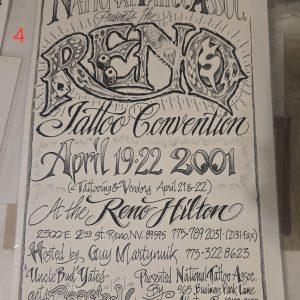 4
National Tattoo Assoc.
Presents the
RENO
Tattoo Convention
April 19-22 2001
(Tattooing & Vendors April 21 & 22)
At the Reno Hilton
2500 E. 2nd St. Reno, NV. 89595 775·789·2051·(2131·Fax)
Hosted by Guy Martynuik 775·322·8623
"Uncle Bud" Yates Presented National Tattoo Assoc.
By 465 Business Park Lane